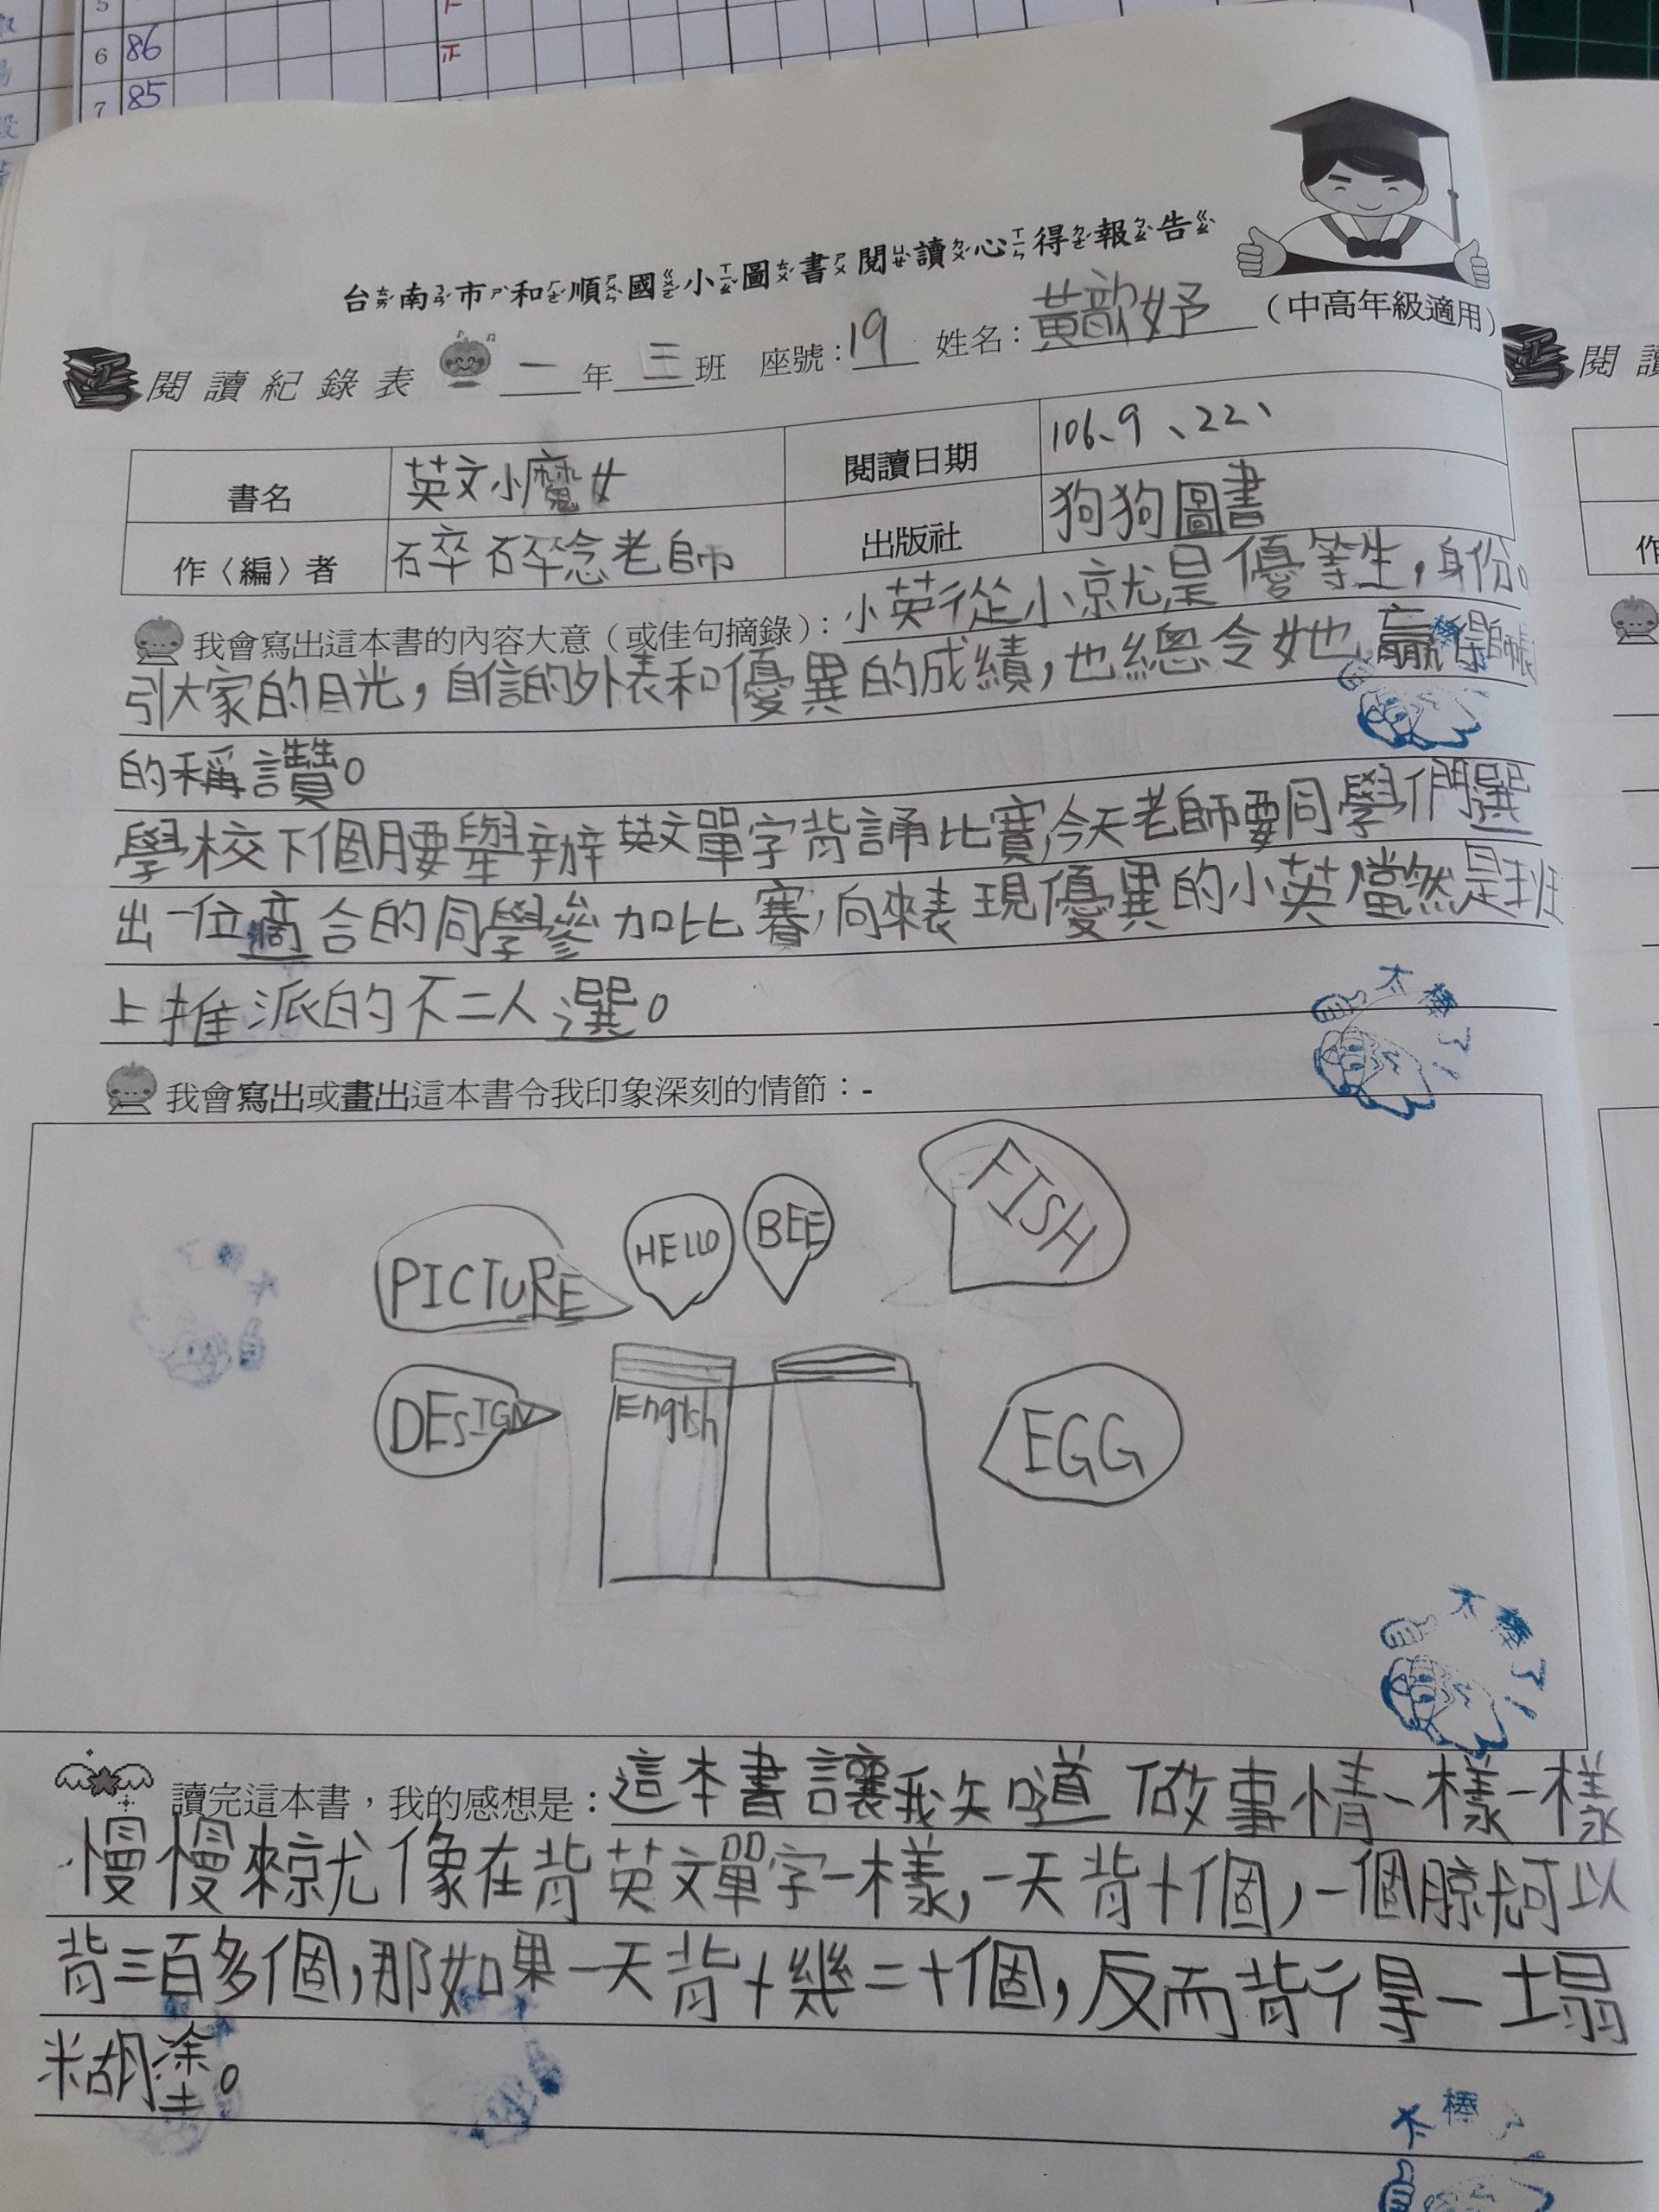 6 86 正
7 85
台南市和順國小圖書閱讀心得報告
(中高年級適用)
閱讀紀錄表 一年三班 座號:19 姓名:黃歆妤
書名 英文小魔女 閱讀日期 106、9、22、
作〈編〉者 碎碎念老師 出版社 狗狗圖書
我會寫出這本書的內容大意(或佳句摘錄):小英從小就是優等生,身份
引大家的目光,自信的外表和優異的成績,也總令她贏得師長
的稱讚。
學校下個月要舉辦英文單字背誦比賽,今天老師要同學們選
出一位適合的同學參加比賽,向來表現優異的小英當然是班
上推派的不二人選。
太棒了!
我會寫出或畫出這本書令我印象深刻的情節:-
FISH
PICTURE HELLO BEE
DESIGN English EGG
太棒了!
讀完這本書,我的感想是:這本書讓我知道做事情一樣一樣
慢慢來就像在背英文單字一樣,一天背十個,一個月就可以
背三百多個,那如果一天背十幾二十個,反而背得一塌
糊塗。
太棒
閱讀
作